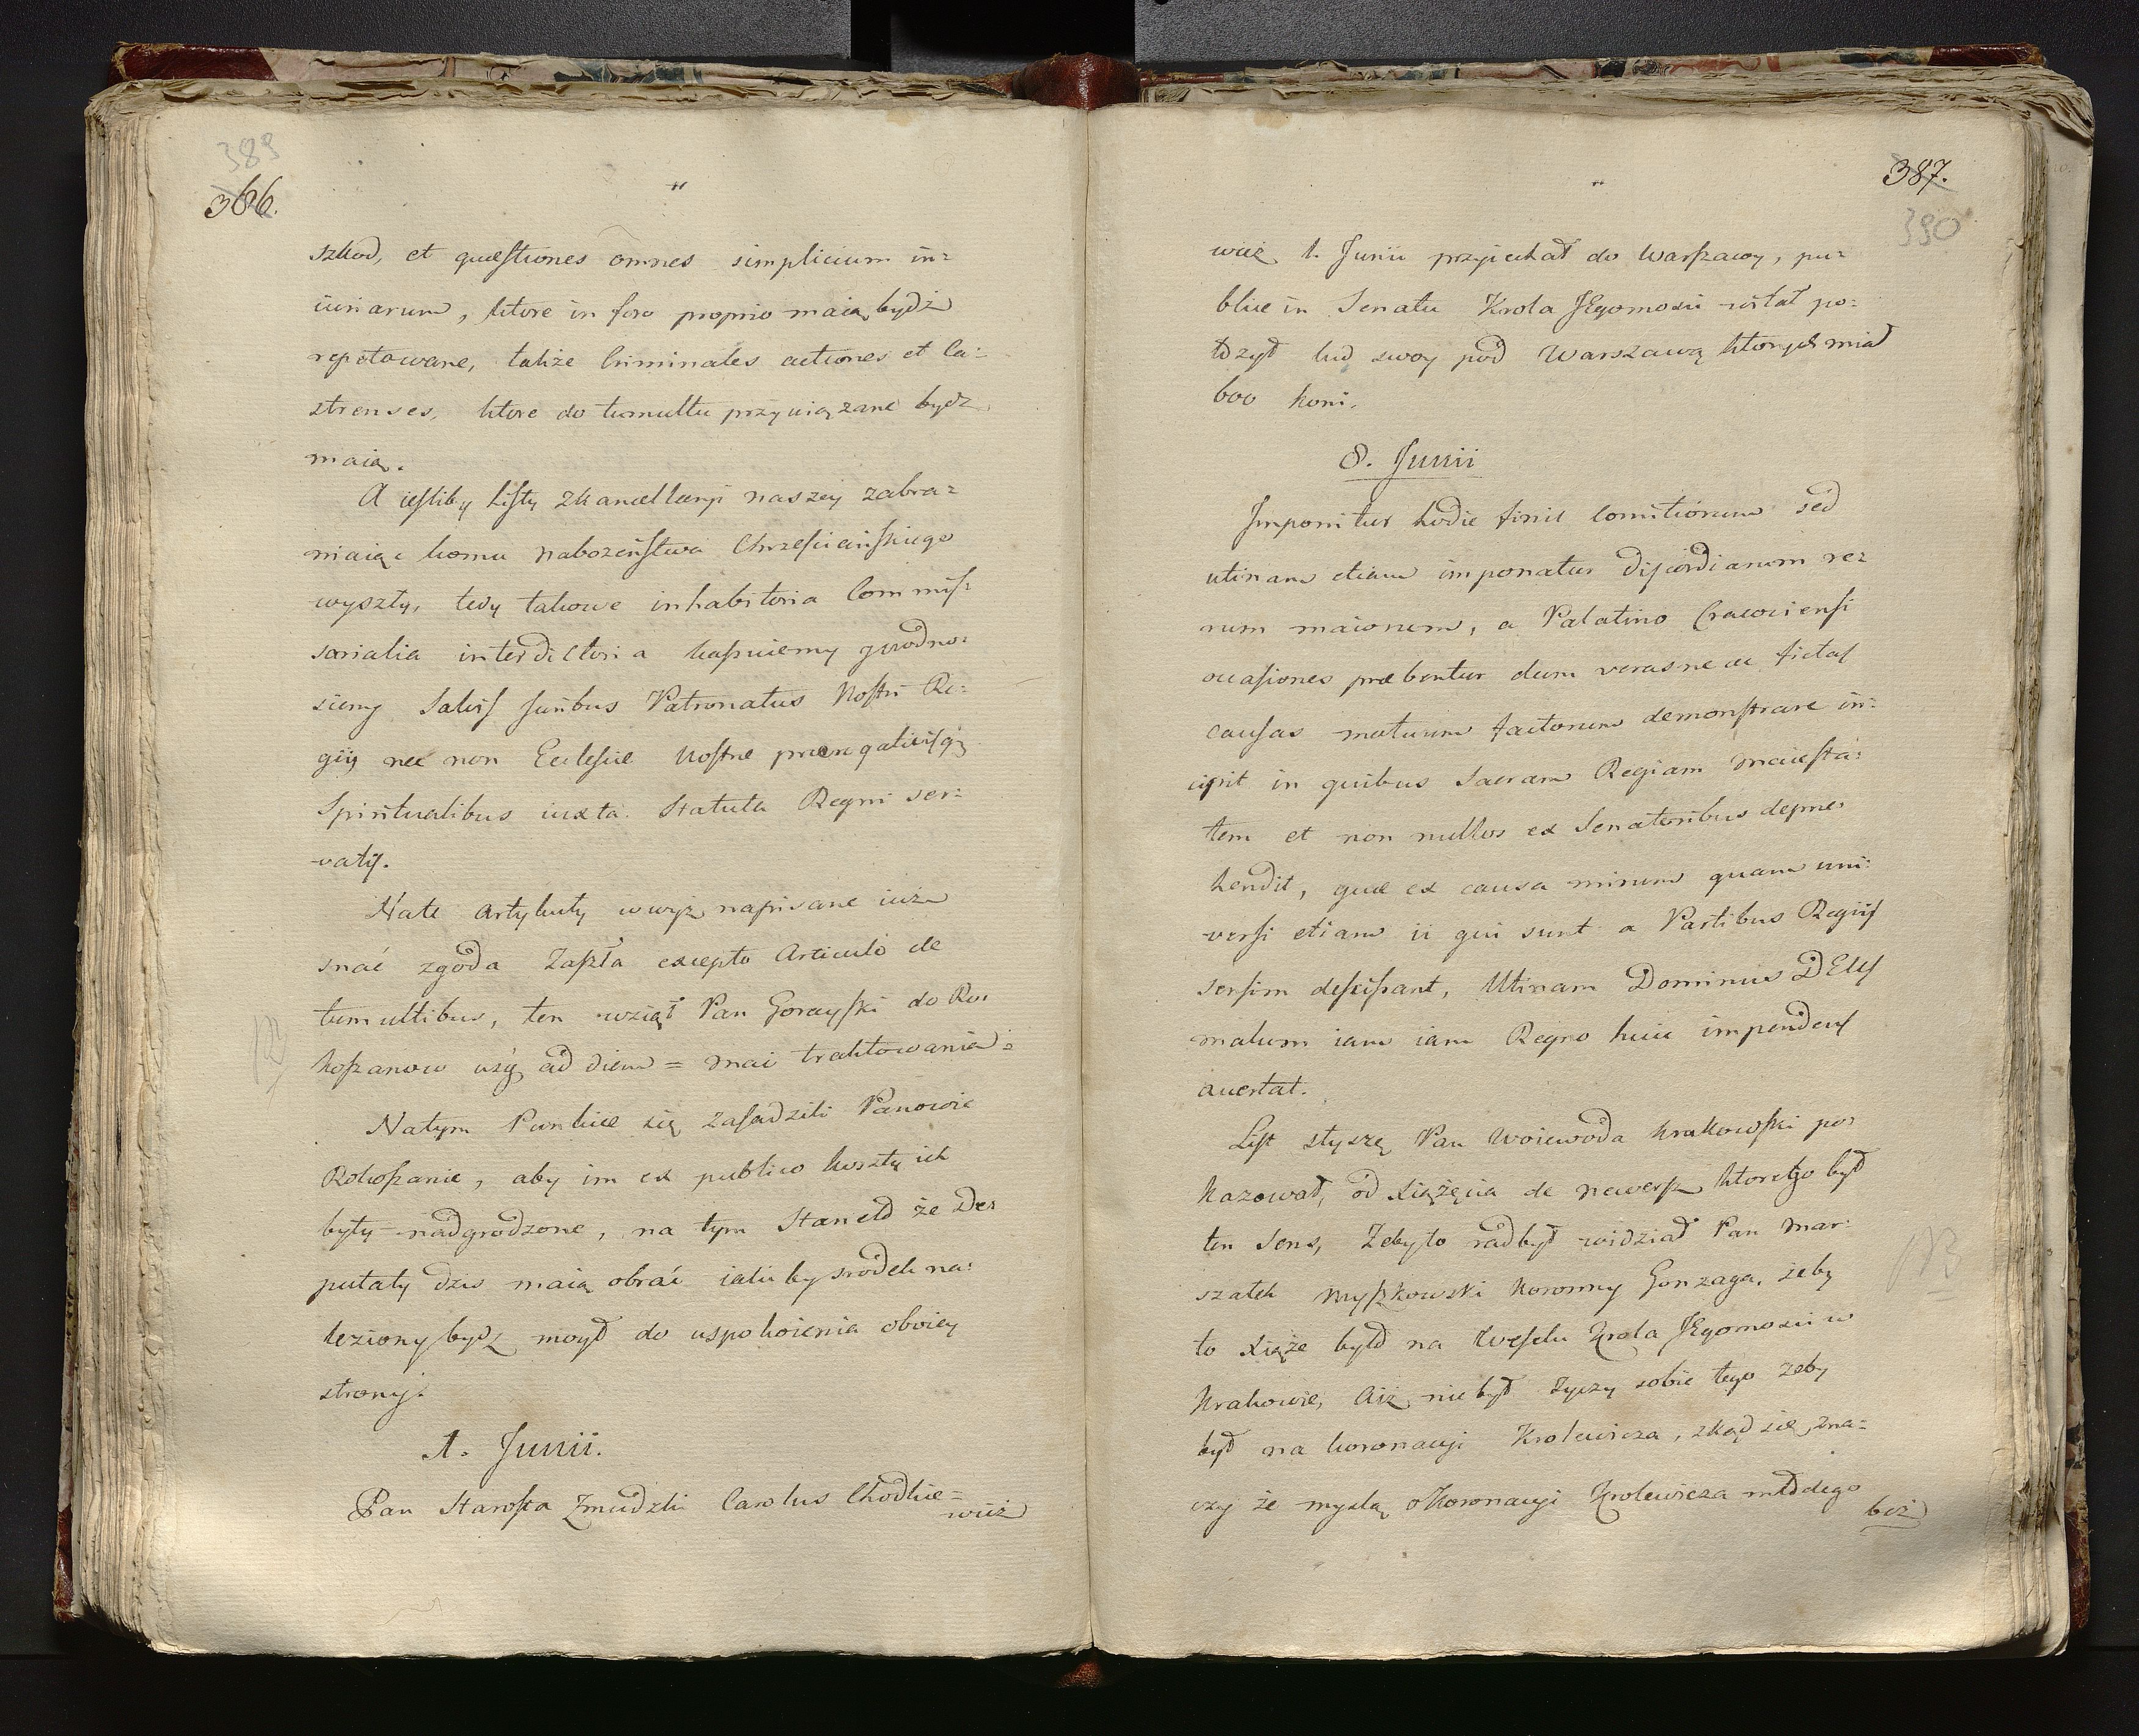 389
386.
szkod, et quæstiones omnes simplicium in=
iuriarum, ktore in foro proprio maią bydź
repetowane, także Criminales actiones et Ca=
strenses, ktore do tumultu przywiązane bydz
maią.
A iesliby Listy z kancellaryi naszey zabra=
niaiąc komu nabozeństwa Chrzesciańskiego
wyszły, tedy takowe inhabitoria Commis=
sarialia interdictoria kassuiemy y odno=
siemy Salvis juribus Patronatus Nostri Re=
giis nec non Eclesiæ Nostræ prærogativisq
Spiritualibus iuxta Statuta Regni ser=
vatis.
Na te Artykuły wwyż napisane iuż
snać zgoda Zaszła excepto Articulo de
tumultibus, ten wziął Pan Gorayski do Ro=
koszanow uży ad diem = mai traktowania=
Na tym Punkcie się zasadzili Panowie
Rokoszanie, aby im ex publico koszty ich
były nadgrodzone, na tym Staneło że De=
putaty dzis maią obrać iakiby srodek na=
leziony bydz mogł do uspokoienia oboiey
strony.
1. Junii.
Pan Starosta Zmudzki Carolus Chodkie=
wicz
387.
390
wicz 1. Junii przyiechał do Warszawy, pu=
blice in Senatu Krola JEgomosci witał po=
łozył lud swoy pod Warszawą ktorych miał
600 koni.
8. Junii
Imponitur hodie finis Comitiorum sed
utinam etiam imponatur discordiarum re=
rum maiorum, a Palatino Cracoviensi
occasiones præbentur dum verasne ac fictas
causas motuum factorum demonstrare in=
cipit in quibus Sacram Regiam maiesta=
tem et non nullos ex Senatoribus depre=
hendit, quæ ex causa mirum quam uni=
versi etiam ii qui sunt a Partibus Regiis
sensim desciscant, Utinam Dominus DEus
malum iam iam Regno huic impendens
avertat.
List słyszę Pan Woiewoda krakowski po=
kazował, od Xiążęcia de newers ktorego był
ten sens, Zeby to radbył widział Pan Mar=
szałek Myszkowski koronny Gonzaga, żeby
to Xiąże było na Weselu Krola JEgomosci w
Krakowie, Aiż niebył zyczy sobie tego zeby
był na koronacyi Krolewicza, zkąd się zna=
czy że myslą o Koronacyi Krolewicza młodego
bez